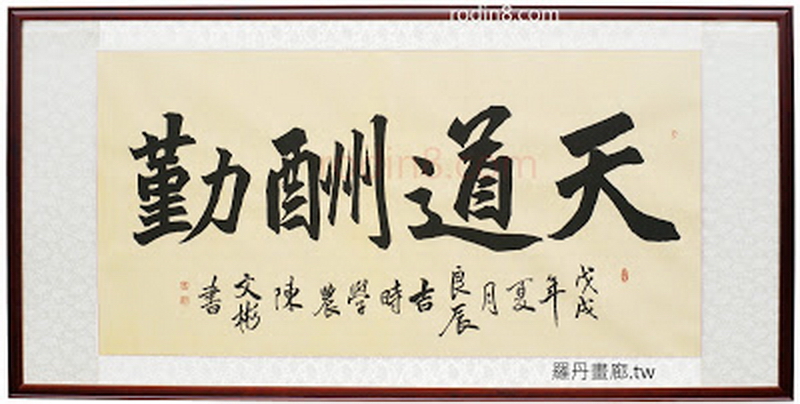 rodin8.com
天道酬勤
rodin8.com
戊戌年夏月良辰吉時學農陳文彬書
羅丹畫廊.tw